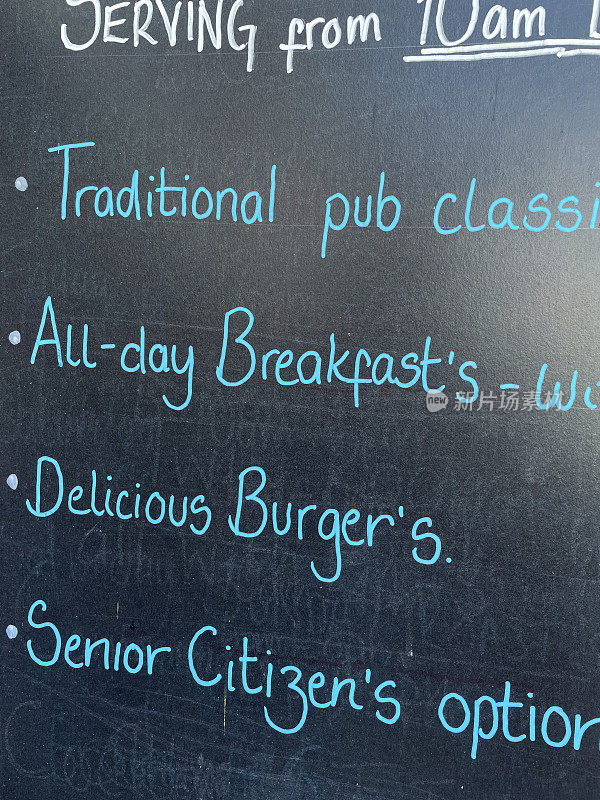 SERVING from 10am
• Traditional pub classi
• All-day Breakfast's - Wi
• Delicious Burger's.
• Senior Citizen's option
new 新片场素材